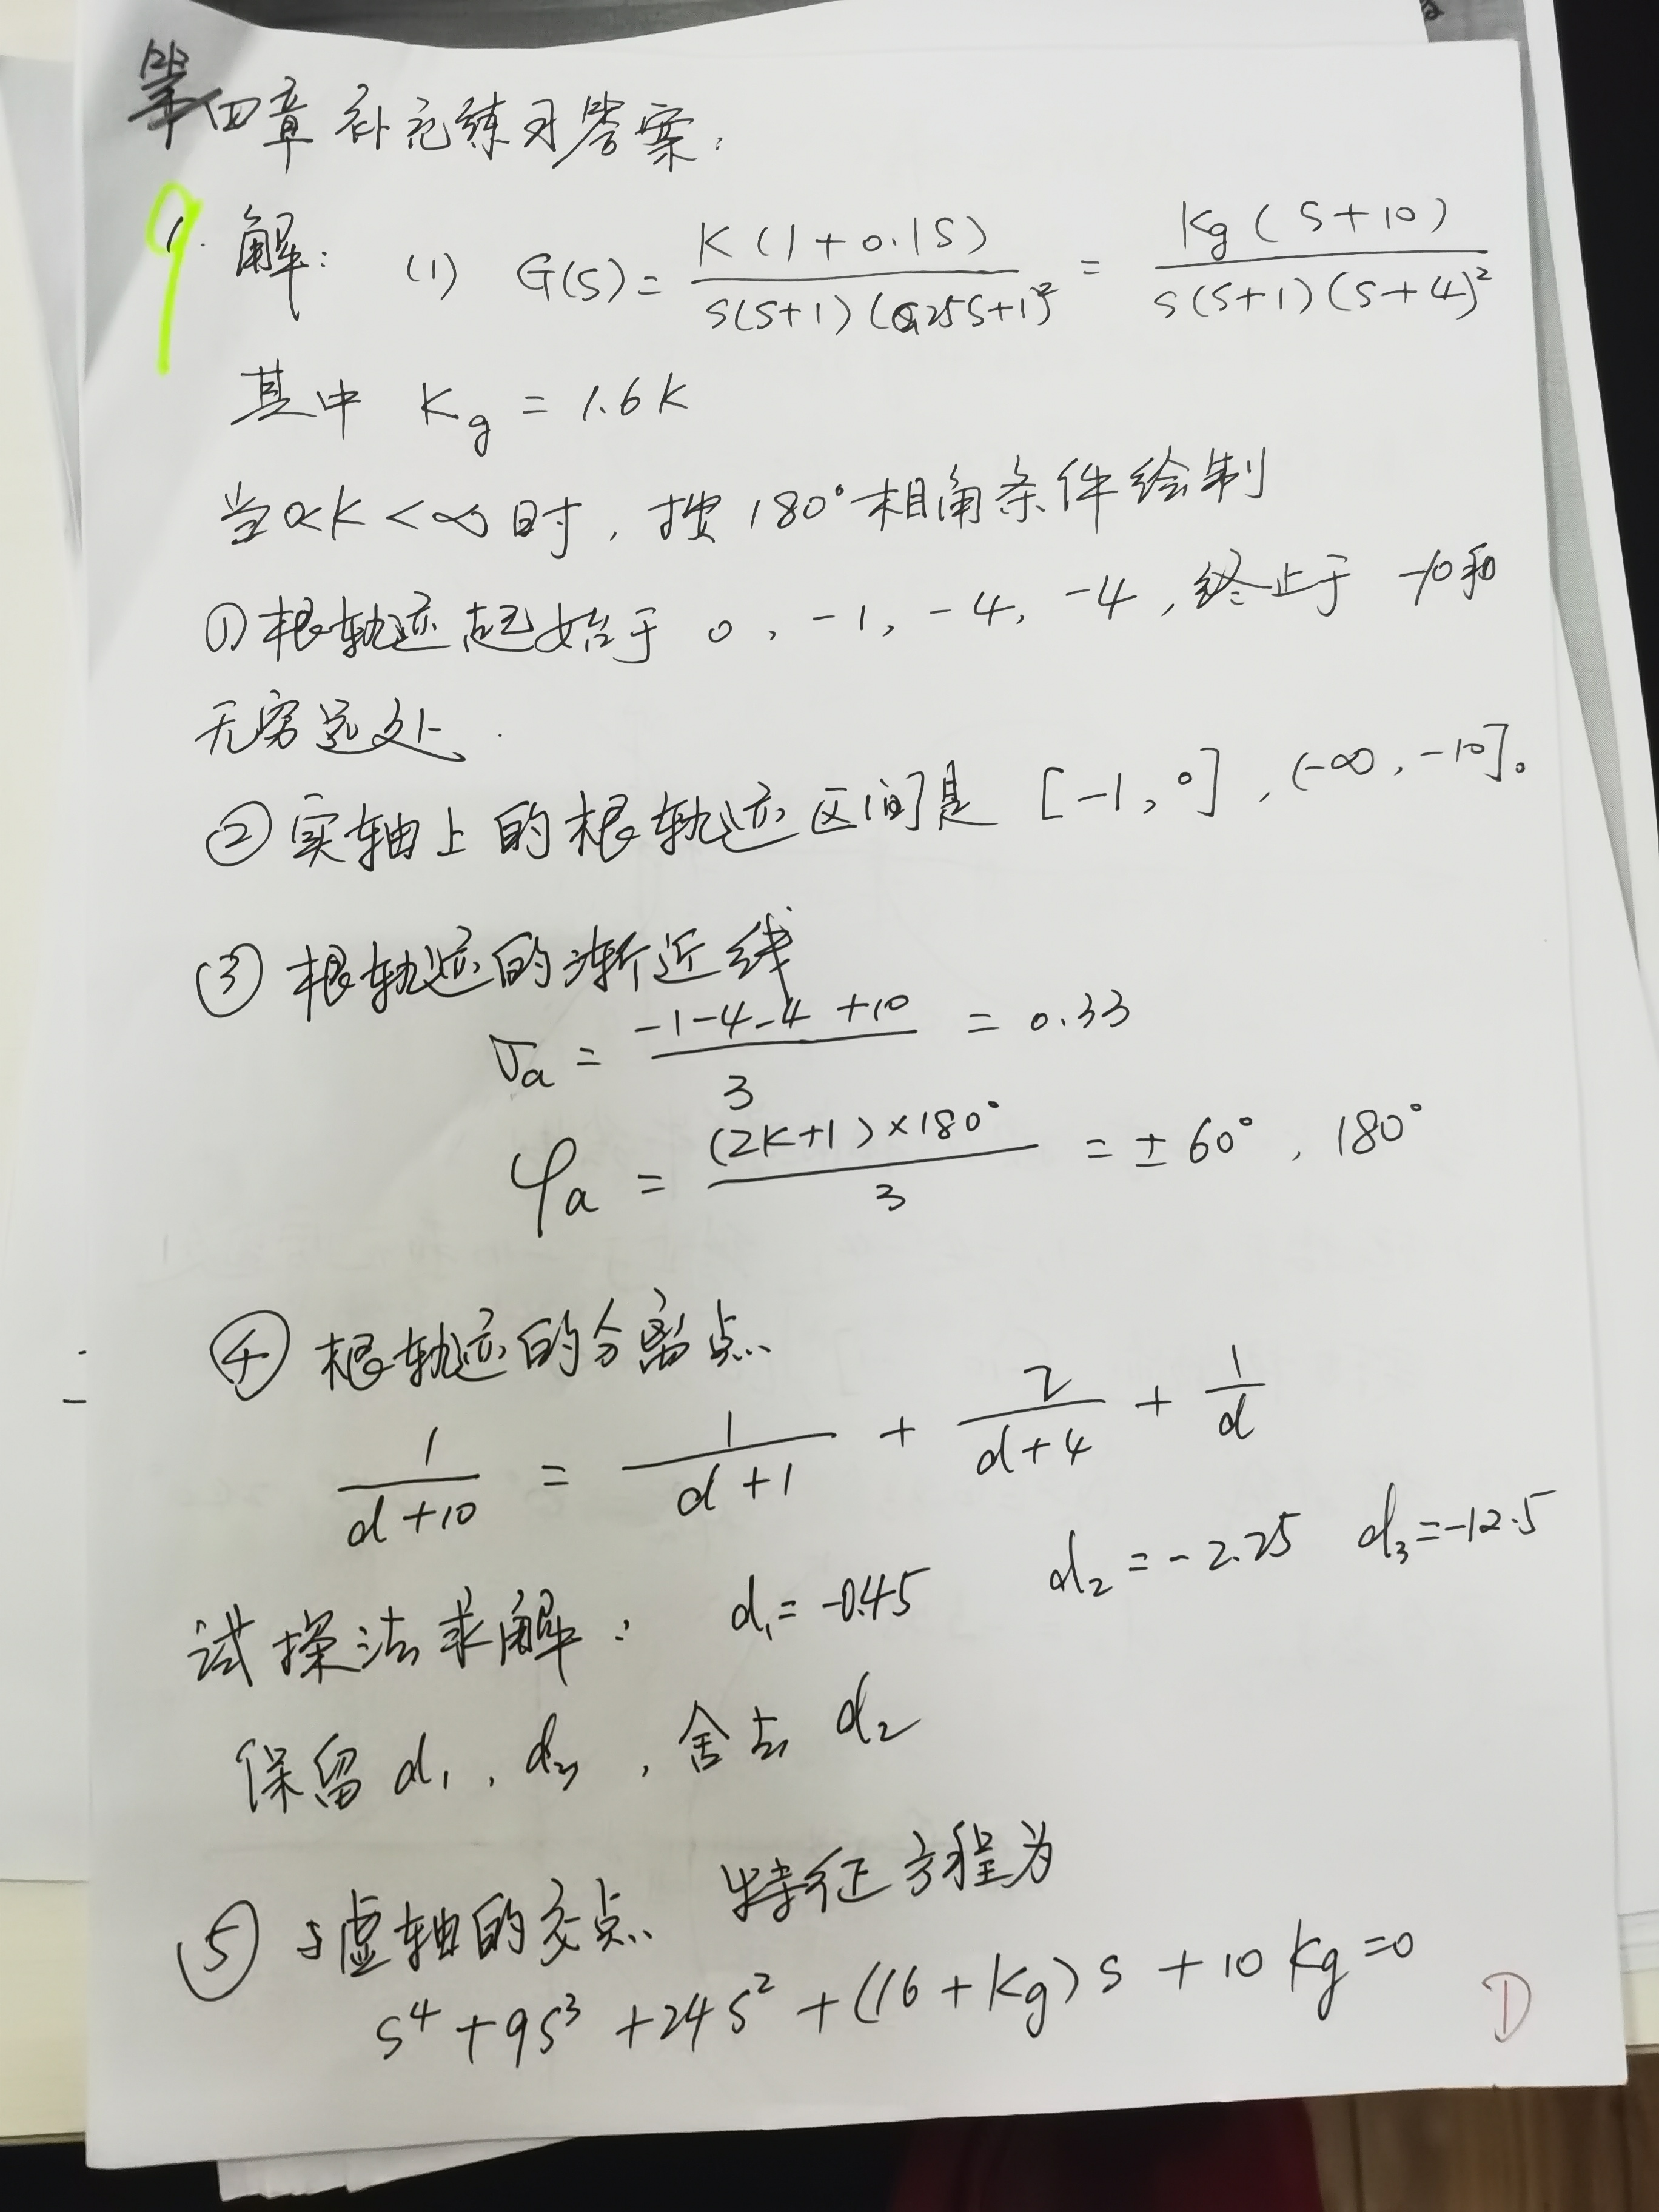 第四章补充练习答案:
9. 解: (1) G(s) = K(1+0.1s) / s(s+1)(0.25s+1)² = Kg(s+10) / s(s+1)(s+4)²
其中 Kg = 1.6K
当 0<K<∞ 时, 按180°相角条件绘制
①根轨迹起始于 0, -1, -4, -4, 终止于 -10和
无穷远处.
②实轴上的根轨迹区间是 [-1, 0], (-∞, -10]。
③ 根轨迹的渐近线
σa = (-1-4-4+10) / 3 = 0.33
φa = (2K+1)×180° / 3 = ±60°, 180°
④ 根轨迹的分离点
1/(d+10) = 1/(d+1) + 2/(d+4) + 1/d
试探法求解: d₁=-0.45 d₂=-2.25 d₃=-12.5
保留d₁, d₃, 舍去 d₂
⑤ 与虚轴的交点 特征方程为
s⁴+9s³+24s²+(16+Kg)s+10Kg=0